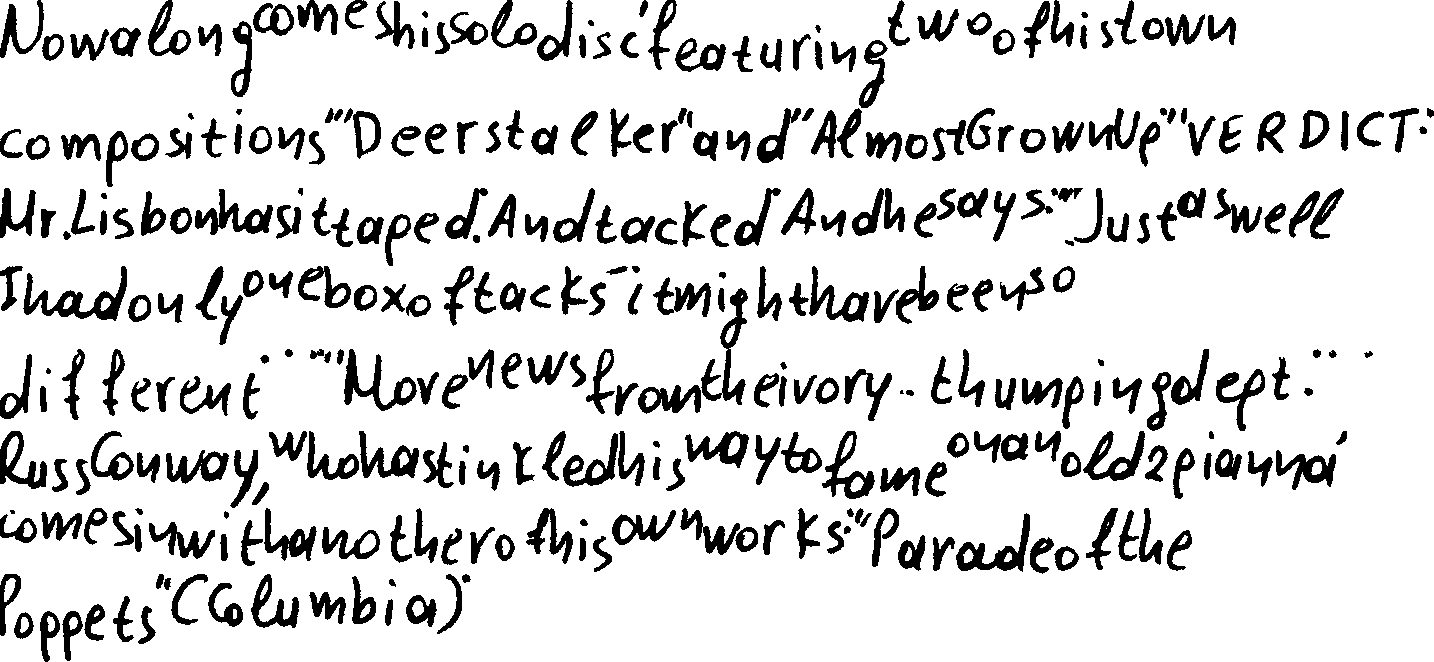 Now along comes his solo disc' featuring two of his town
compositions "'Deerstalker" and "Almost Grown Up"' VERDICT:
Mr. Lisbon has it taped. And tacked And he says: "Just as well
I had only one box of tacks - it might have been so
different ... "'More news from the ivory-thumping dept. ...
Russ Conway, who has tinkled his way to fame on an old 2 pianna'
comes in with another of his own works: "Parade of the
Poppets" (Columbia).